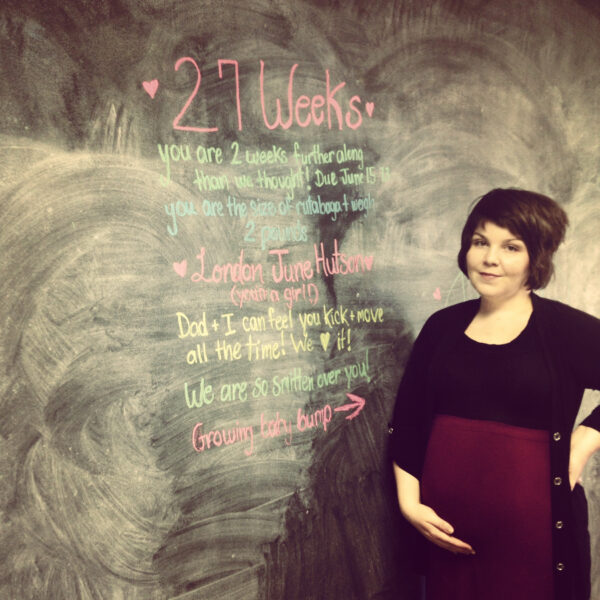 27 Weeks
you are 2 weeks further along
than we thought! Due June 15
you are the size of rutabaga + weigh
2 pounds
London June Hutson
(you're a girl!)
Dad + I can feel you kick + move
all the time! We ♥ it!
We are so smitten over you!
Growing baby bump →